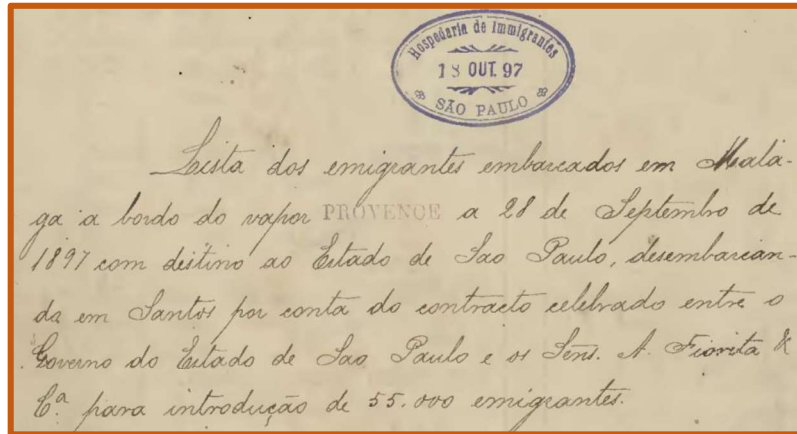 Hospedaria de Immigrantes
18 OUT. 97
SÃO PAULO
Lista dos emigrantes embarcados em Mala-
ga a bordo do vapor PROVENCE a 28 de Septembro de
1897 com destino ao Estado de Sao Paulo, desembarcan-
da em Santos por conta do contracto celebrado entre o
Governo do Estado de Sao Paulo e os Sens. A. Fiorita &
Cª para introducção de 55.000 emigrantes.